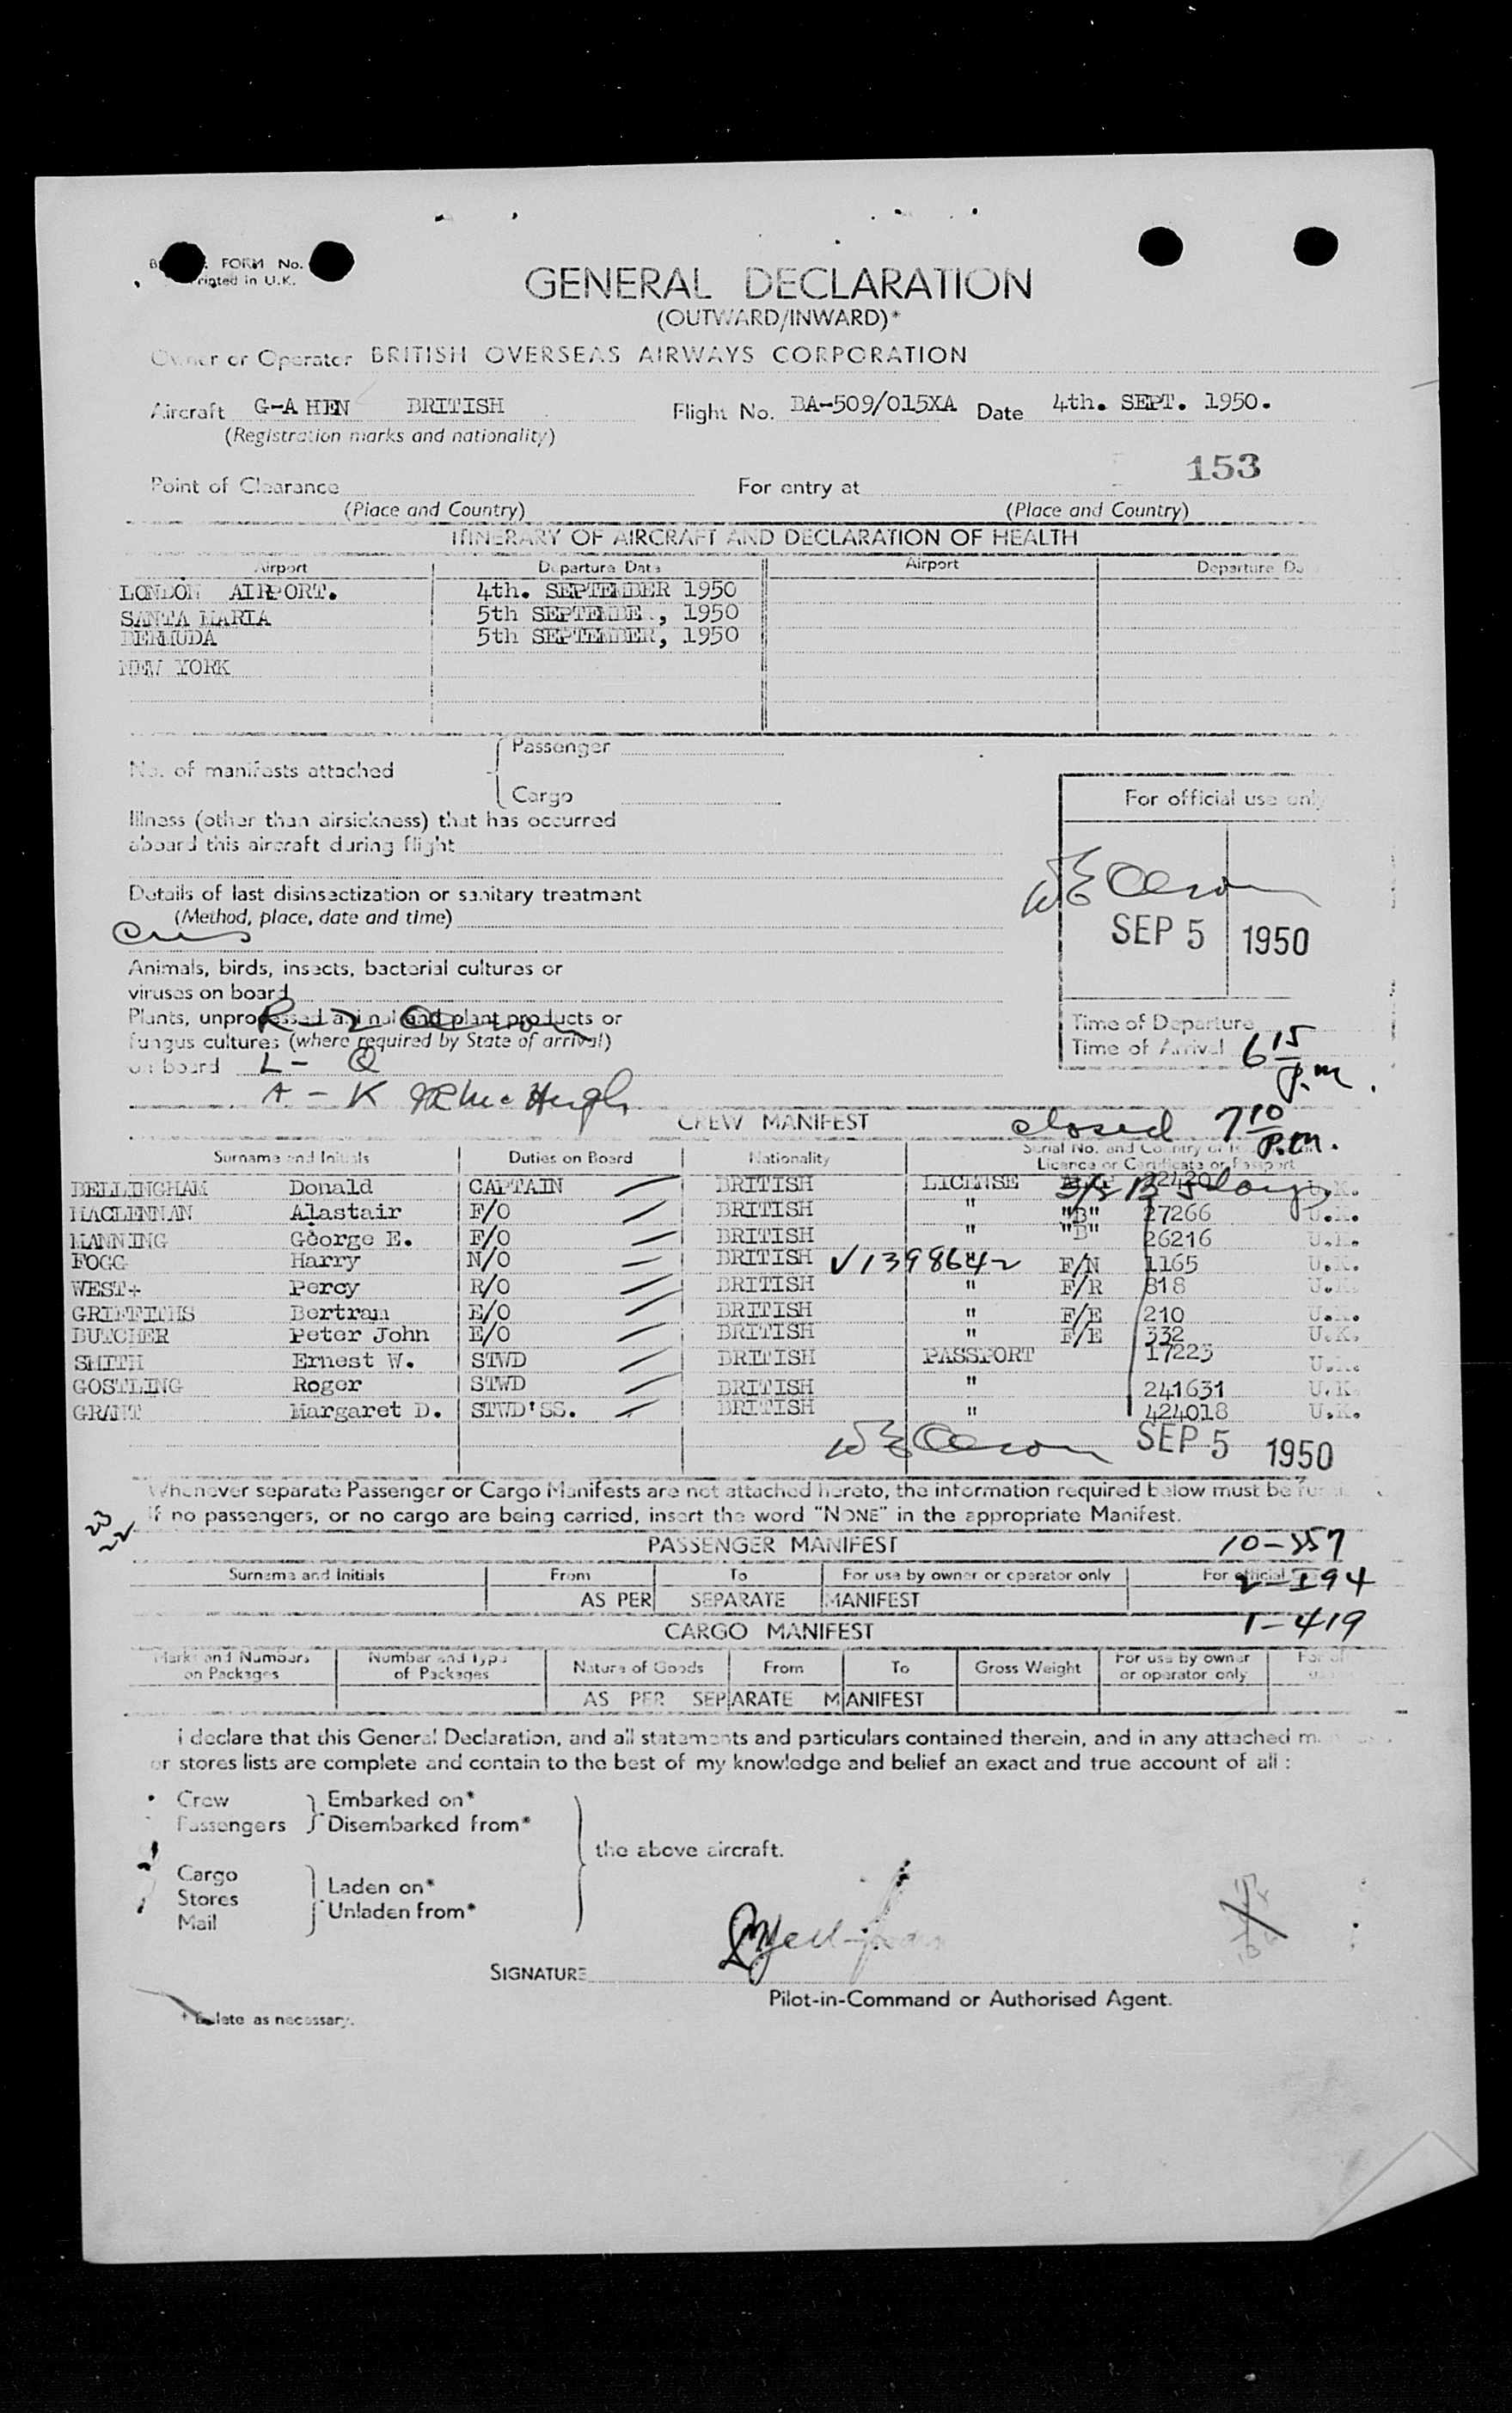 FORM No.
Printed in U.K.
GENERAL DECLARATION
(OUTWARD/INWARD)*
Owner or Operator BRITISH OVERSEAS AIRWAYS CORPORATION
Aircraft G-A HEN BRITISH Flight No. BA-509/015XA Date 4th. SEPT. 1950.
(Registration marks and nationality)
153
Point of Clearance For entry at
(Place and Country) (Place and Country)
ITINERARY OF AIRCRAFT AND DECLARATION OF HEALTH
Airport Departure Date Airport Departure Da
LONDON AIRPORT. 4th. SEPTEMBER 1950
SANTA MARIA 5th SEPTEMBE , 1950
BERMUDA 5th SEPTEMBER, 1950
NEW YORK
No. of manifests attached
Passenger
Cargo
For official use only
Illness (other than airsickness) that has occurred
aboard this aircraft during flight
Details of last disinsectization or sanitary treatment
(Method, place, date and time)
SEP 5 1950
Animals, birds, insects, bacterial cultures or
viruses on board
Plants, unprocessed animal and plant products or
fungus cultures (where required by State of arrival)
on board
R-Z
L- Q
A - K
Time of Departure
Time of Arrival 6 15 P.M.
closed 7 10 P.M.
CREW MANIFEST
Surname and Initials Duties on Board Nationality Serial No. and Country of
Licence or Certificate or Passport
BELLINGHAM Donald CAPTAIN BRITISH LICENSE U.K.
MACLENNAN Alastair F/O BRITISH " "B" 27266 U.K.
MANNING George E. F/O BRITISH " "B" 26216 U.K.
FOGG Harry N/O BRITISH V1398642 F/N 1165 U.K.
WEST+ Percy R/O BRITISH " F/R 818 U.K.
GRIFFITHS Bertram E/O BRITISH " F/E 210 U.K.
BUTCHER Peter John E/O BRITISH " F/E 332 U.K.
SMITH Ernest W. STWD BRITISH PASSPORT 17223 U.K.
GOSTLING Roger STWD BRITISH " 241631 U.K.
GRANT Margaret D. STWD'SS. BRITISH " 424018 U.K.
SEP 5 1950
Whenever separate Passenger or Cargo Manifests are not attached hereto, the information required below must be
If no passengers, or no cargo are being carried, insert the word "NONE" in the appropriate Manifest.
23
22
PASSENGER MANIFEST 10-557
Surname and Initials From To For use by owner or operator only For official
2-I94
AS PER SEPARATE MANIFEST
CARGO MANIFEST 1-419
Marks and Numbers on Packages Number and Type of Packages Nature of Goods From To Gross Weight For use by owner or operator only
AS PER SEPARATE MANIFEST
I declare that this General Declaration, and all statements and particulars contained therein, and in any attached
or stores lists are complete and contain to the best of my knowledge and belief an exact and true account of all :
Crew
Passengers
Embarked on*
Disembarked from*
the above aircraft.
Cargo
Stores
Mail
Laden on*
Unladen from*
SIGNATURE
Pilot-in-Command or Authorised Agent.
* Delete as necessary.